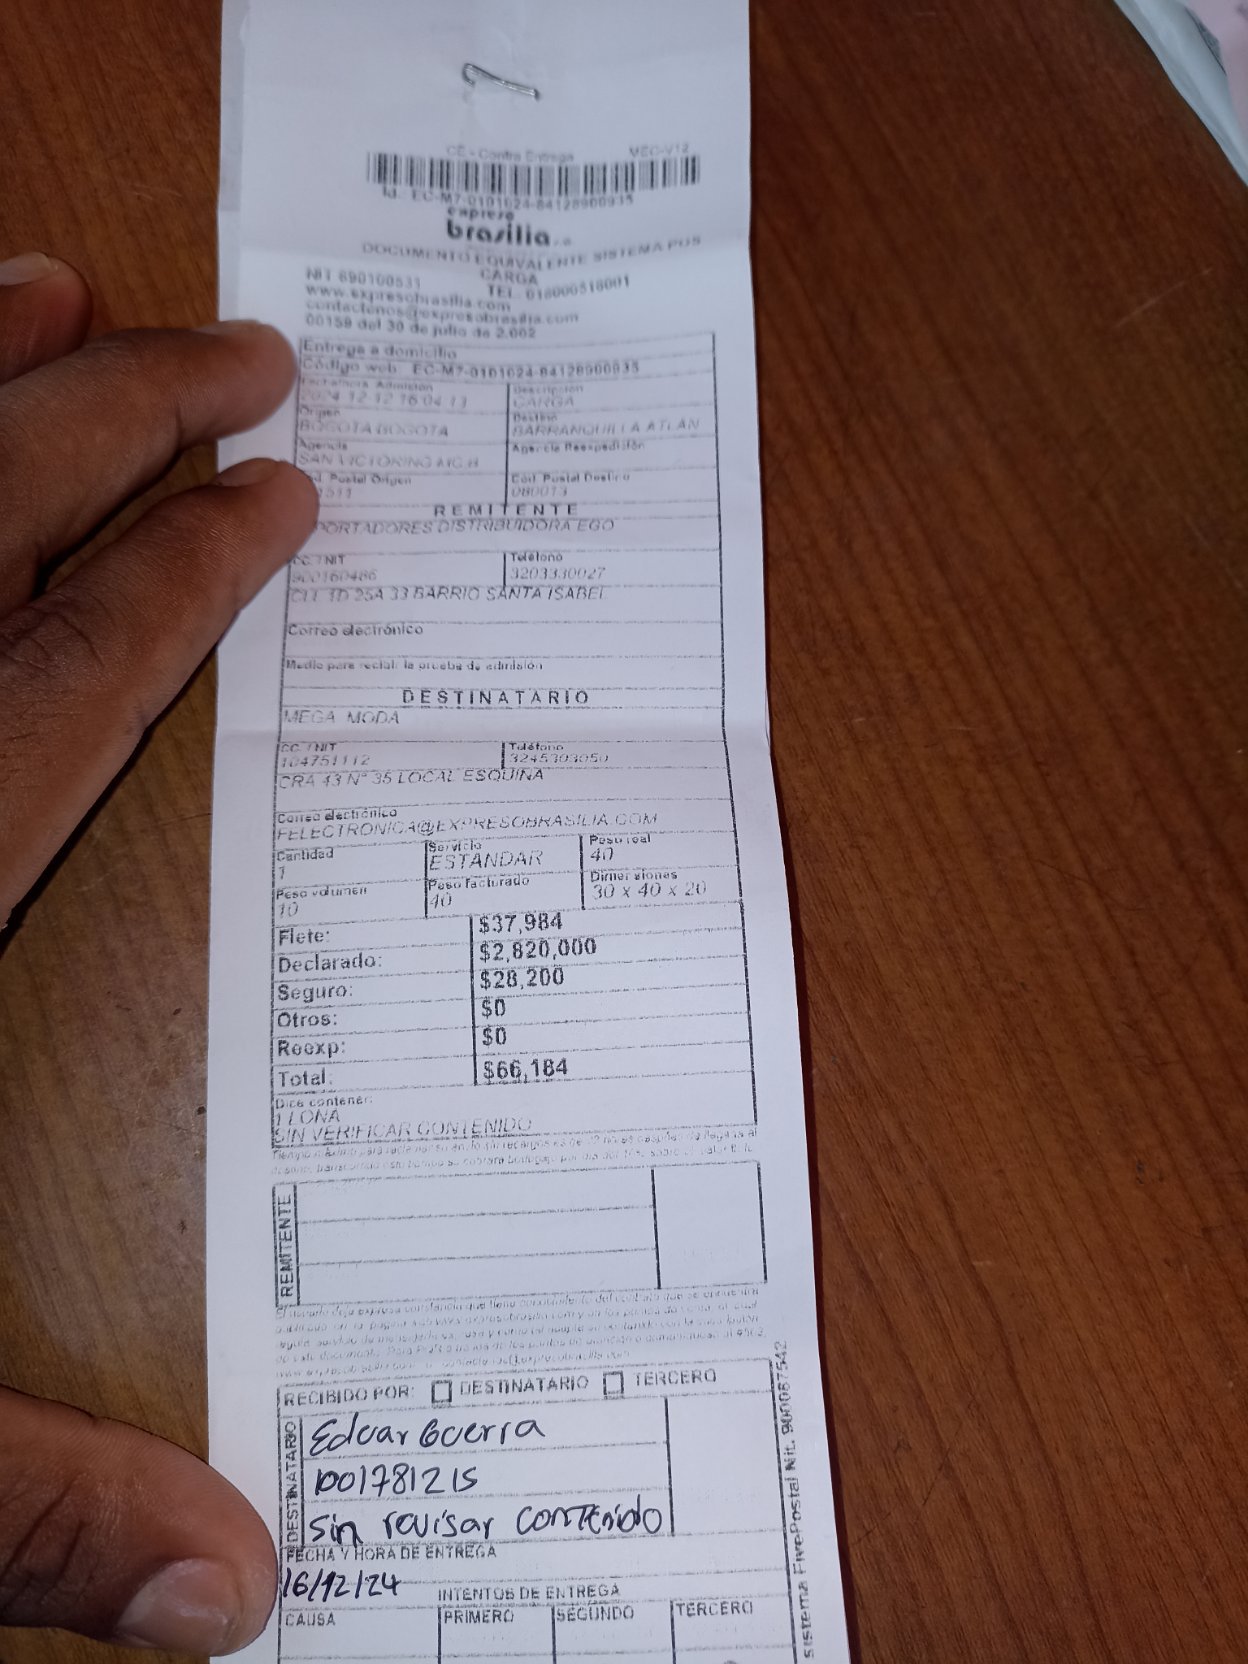 CE - Contra Entrega MEC-V12
Id.: EC-M7-0101024-84128900935
expreso
brasilia s.a
DOCUMENTO EQUIVALENTE SISTEMA POS
CARGA
NIT 890100531 TEL. 018000518001
www.expresobrasilia.com
contactenos@expresobrasilia.com
00159 del 30 de julio de 2.002
Entrega a domicilio
Código web: EC-M7-0101024-84128900935
Fecha/Hora Admisión Descripción
2024-12-12 16:04:13 CARGA
Origen Destino
BOGOTA BOGOTA BARRANQUILLA ATLAN
Agencia Agencia Reexpedición
SAN VICTORINO MC B
Postal Origen Cód. Postal Destino
1511 080013
REMITENTE
PORTADORES DISTRIBUIDORA EGO
CC. / NIT Teléfono
900160486 3203330027
CLL 1D 25A 33 BARRIO SANTA ISABEL
Correo electrónico
Medio para recibir la prueba de admisión
DESTINATARIO
MEGA MODA
CC. / NIT Teléfono
104751112 3245303050
CRA 43 N° 35 LOCAL ESQUINA
Correo electrónico
FELECTRONICA@EXPRESOBRASILIA.COM
Cantidad Servicio Peso real
1 ESTANDAR 40
Peso volumen Peso facturado Dimensiones
10 40 30 x 40 x 20
Flete: $37,984
Declarado: $2,820,000
Seguro: $28,200
Otros: $0
Reexp: $0
Total: $66,184
Dice contener:
1 LONA
SIN VERIFICAR CONTENIDO
REMITENTE
RECIBIDO POR: DESTINATARIO TERCERO
DESTINATARIO
Eduar Guerra
1001781215
Sin revisar contenido
FECHA Y HORA DE ENTREGA
16/12/24 INTENTOS DE ENTREGA
CAUSA PRIMERO SEGUNDO TERCERO
sistema FivePostal Nit. 900087542